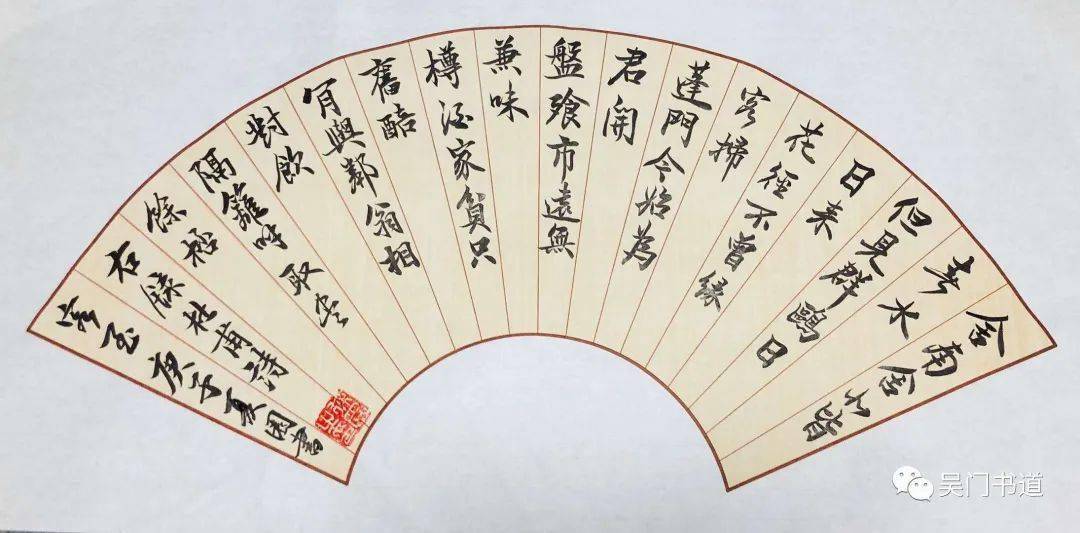 舍南舍北皆
春水
但見群鷗日
日来
花徑不曾緣
客掃
蓬門今始為
君開
盤飱市遠無
兼味
樽酒家貧只
舊醅
肯與鄰翁相
對飲
隔籬呼取尽
餘杯
右錄杜甫詩
客至庚子夏國書
吴门书道